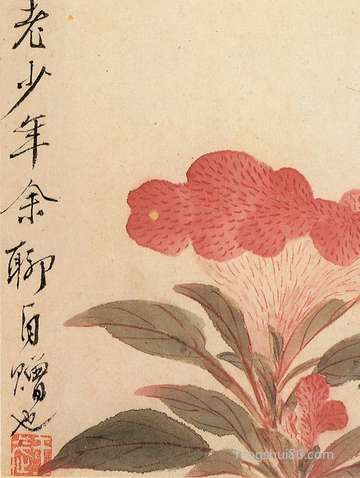 老少年余聊自赠也
Tongshui88.com